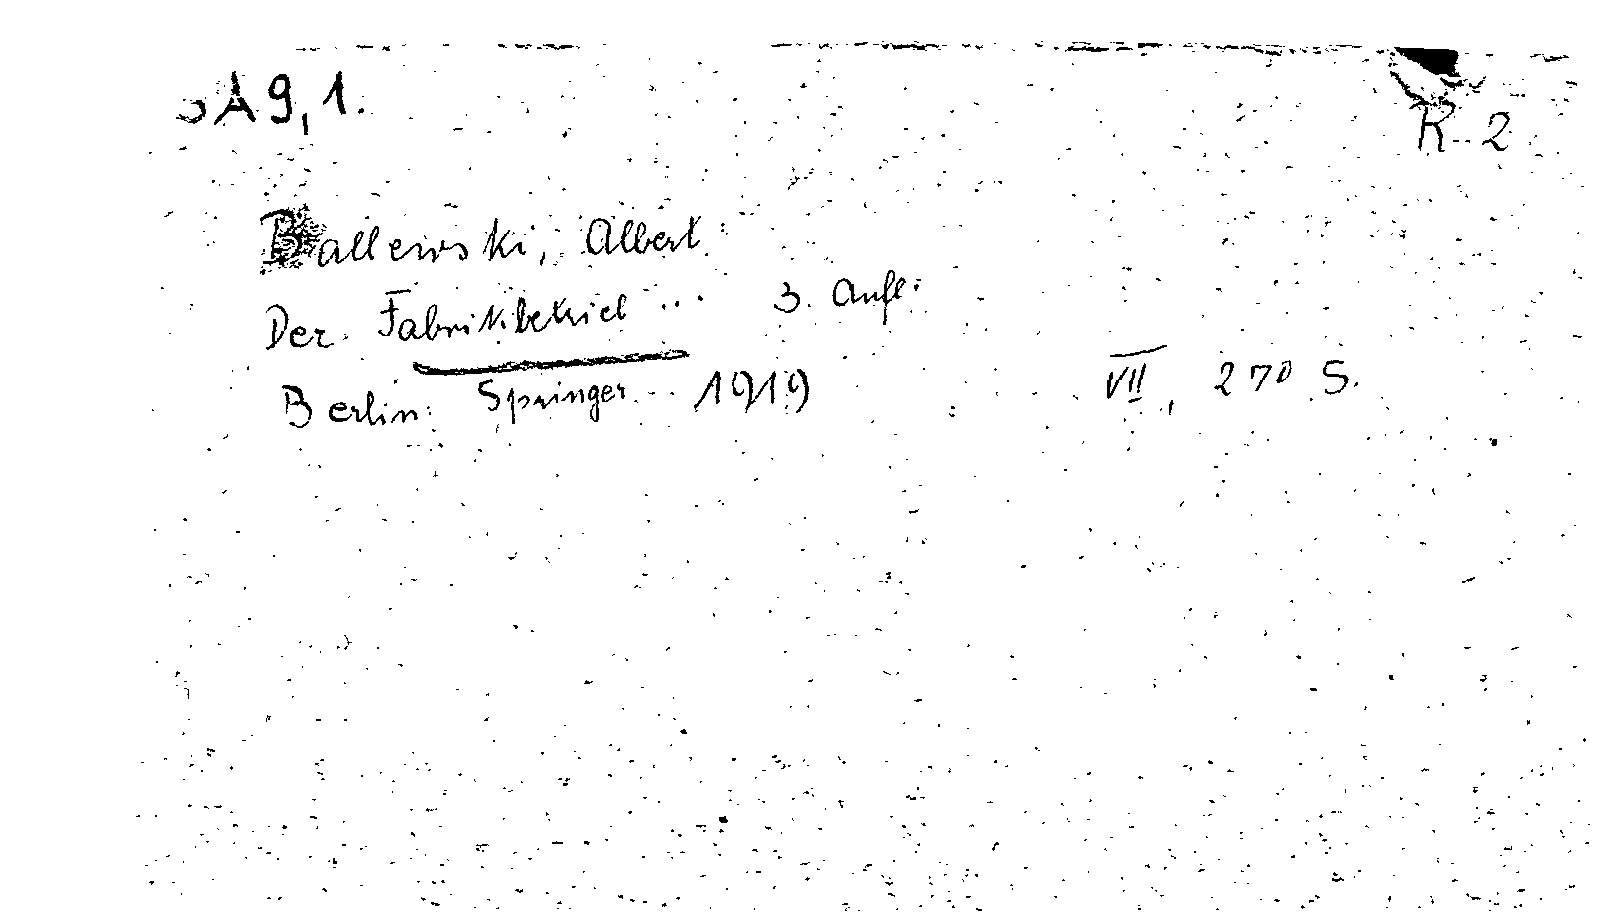 A 9, 1.
R 2
Ballewski, Albert
Der Fabrikbetrieb ... 3. Aufl.
Berlin: Springer 1919 VII, 270 S.